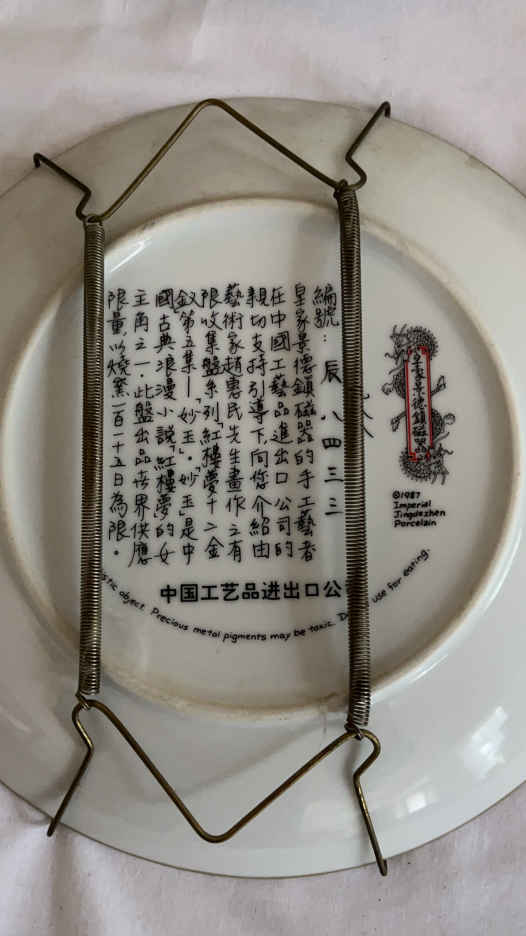 皇家景德鎮磁器
©1987
Imperial
Jingdezhen
Porcelain
編號：辰八四三三
皇家景德鎮磁器的手工藝者
在中國工藝品進出口公司的
親切支持引導下向您介紹由
藝術家趙惠民先生畫作之有
限收集盤系列「紅樓夢十二金
釵」第五集—「妙玉」。妙玉是中
國古典浪漫小說「紅樓夢」的女
主角之一，此盤出品世界供應
限量以燒窯一百一十五日為限。
中国工艺品进出口公
object. Precious metal pigments may be toxic. use for eating.